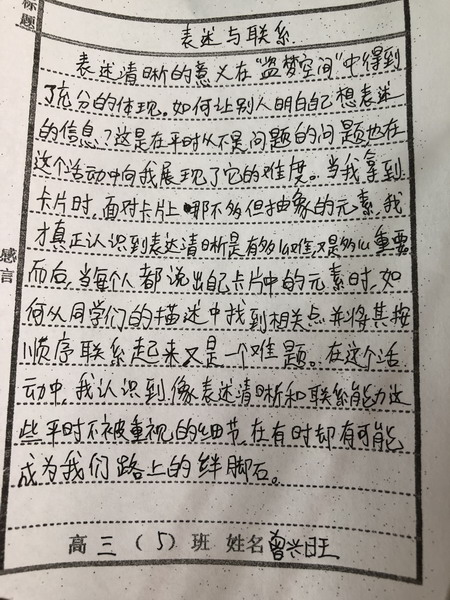 标题
表述与联系
表述清晰的意义在“盗梦空间”中得到
了充分的体现。如何让别人明白自己想表述
的信息?这是在平时从不是问题的问题也在
这个活动中向我展现了它的难度。当我拿到
卡片时,面对卡片上那不多但抽象的元素,我
才真正认识到表达清晰是有多么难,又是多么重要
而后,当每个人都说出自己卡片中的元素时,如
何从同学们的描述中找到相关点并将其按
顺序联系起来又是一个难题。在这个活
动中,我认识到,像表述清晰和联系能力这
些平时不被重视的细节,在有时却有可能
成为我们路上的绊脚石。
感言
高三(5)班 姓名曾兴旺